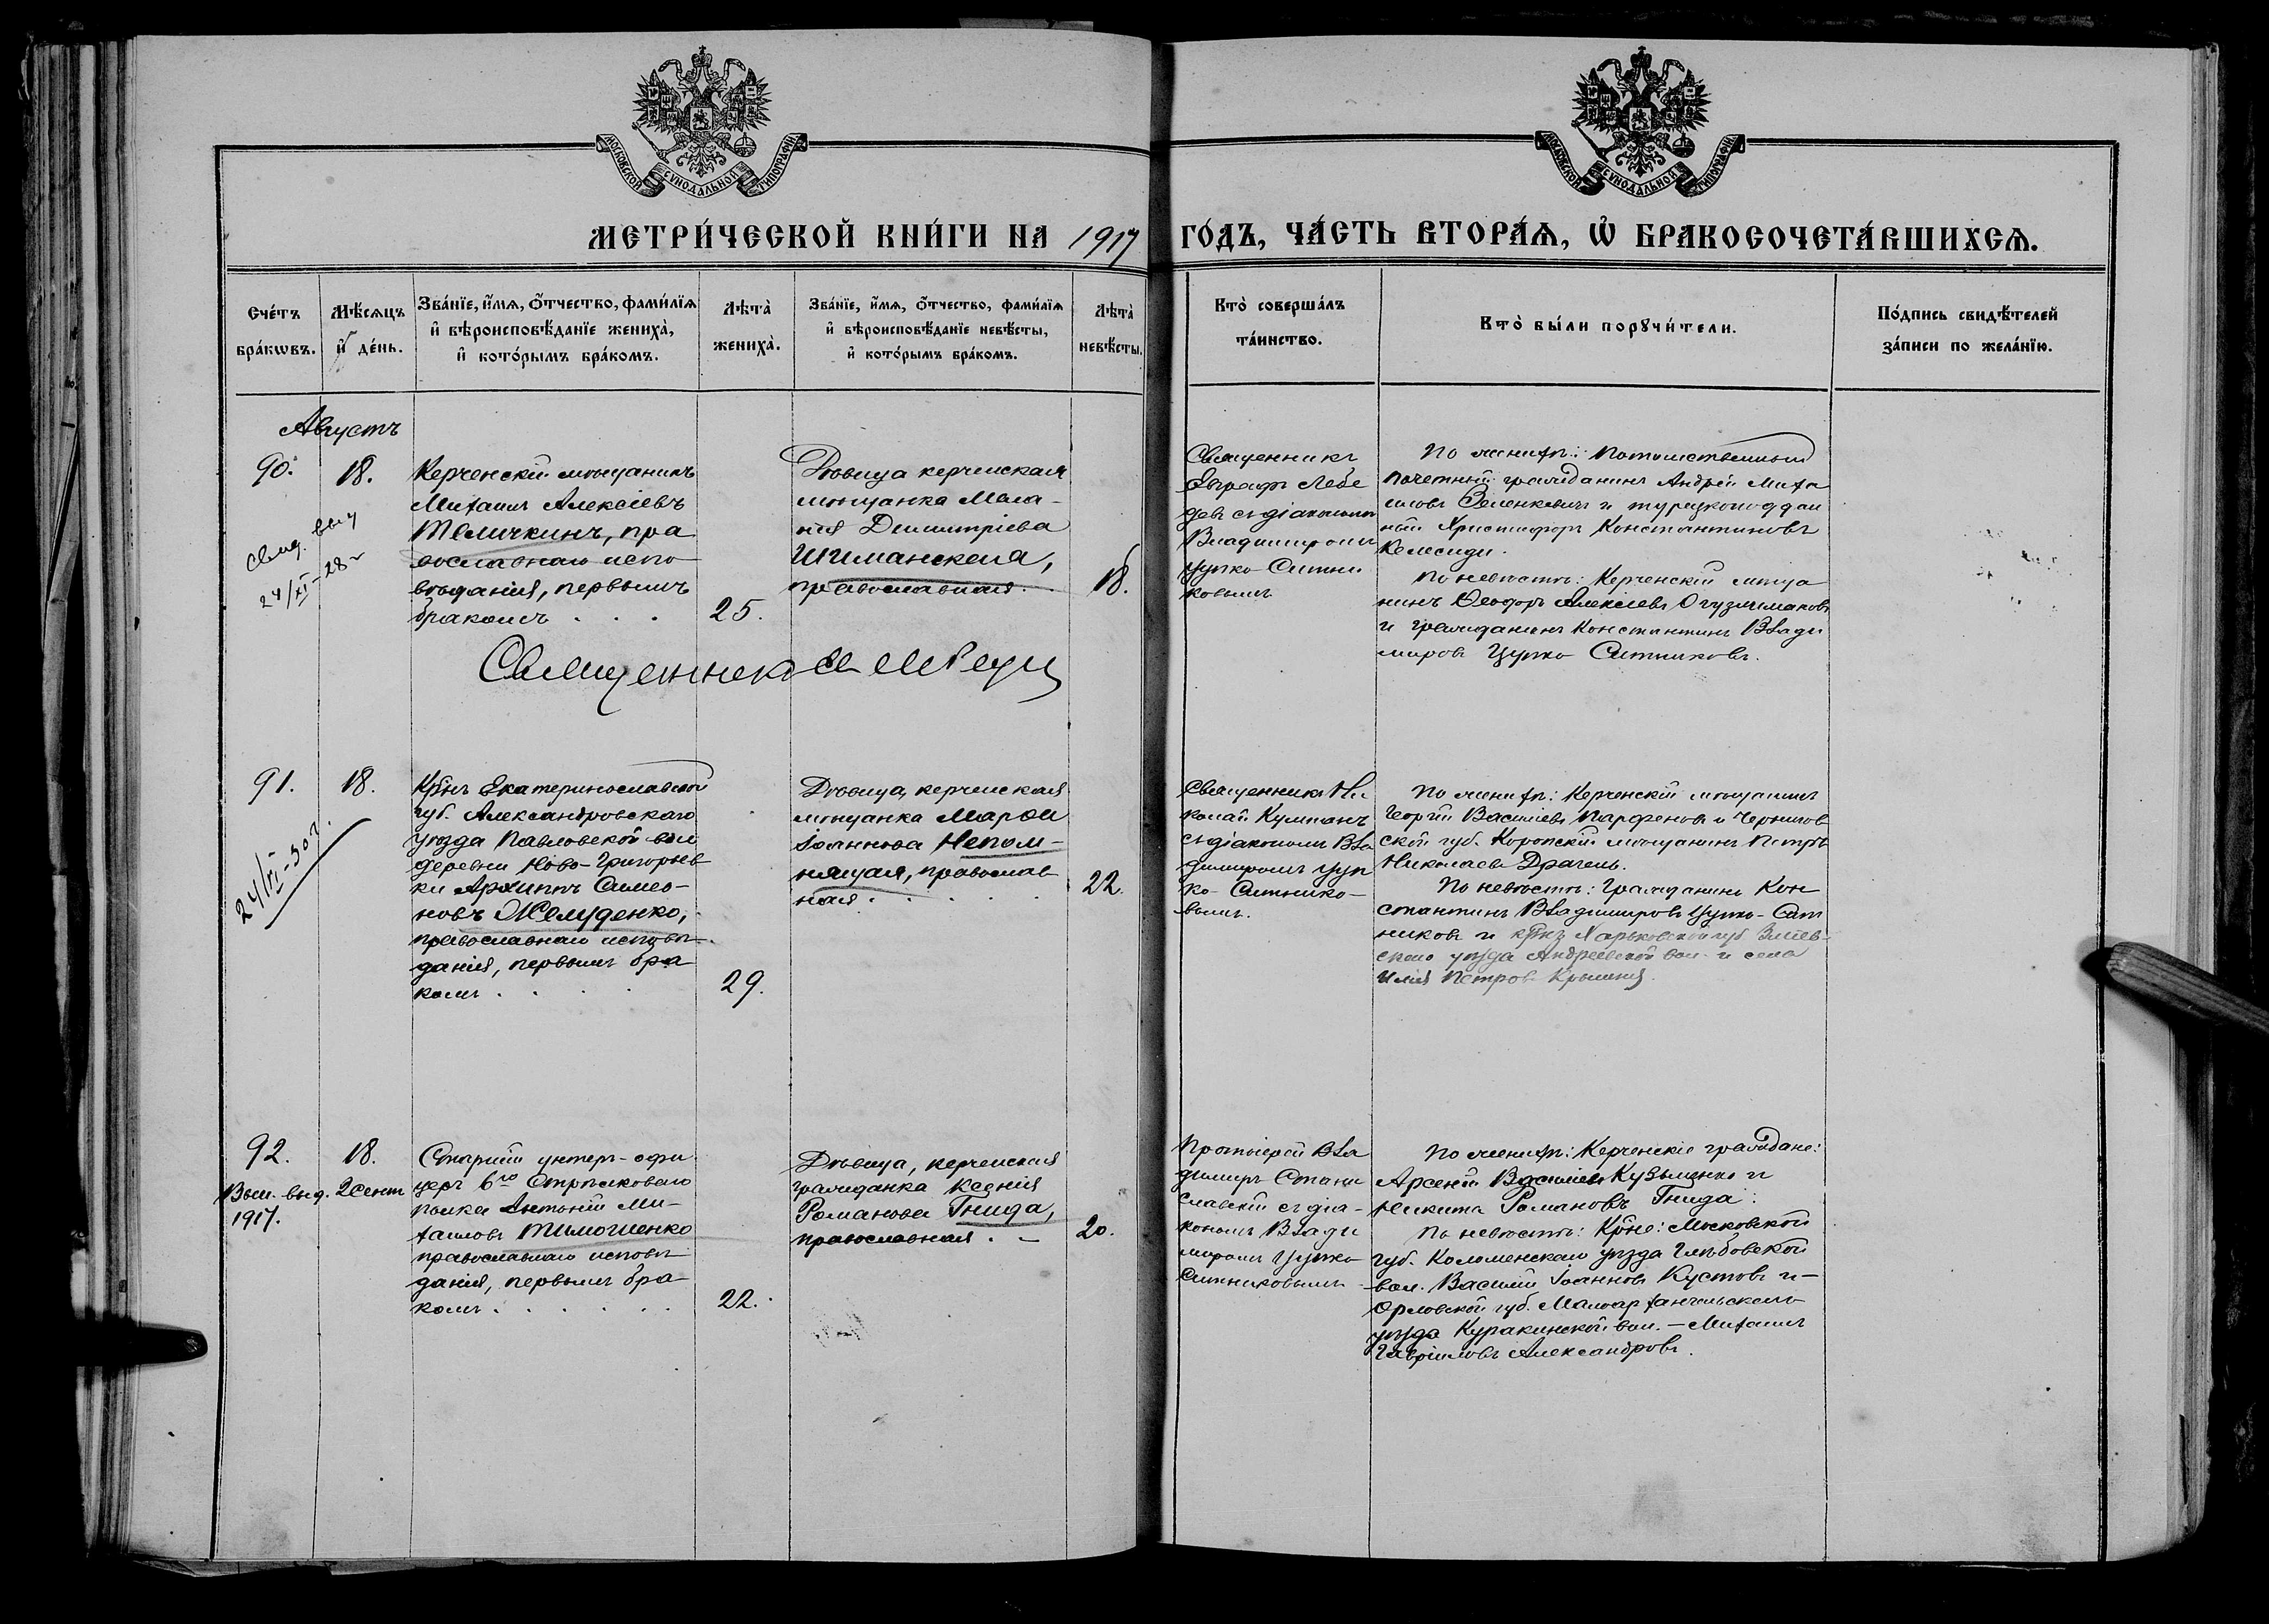 МОСКОВСКОЙ СУНОДАЛЬНОЙ ТИПОГРАФІИ
МОСКОВСКОЙ СУНОДАЛЬНОЙ ТИПОГРАФІИ
МЕТРИ́ЧЕСКОЙ КНИ́ГИ НА 1917 ГО́ДЪ, ЧА́СТЬ ВТОРА́Ѧ, Ѡ БРАКОСОЧЕТА́ВШИХСѦ.
Сче́тъ
бра́кѡвъ.
Мѣ́сѧцъ
и҆ де́нь.
Зва́нїе, и҆́мѧ, ѻ҆́тчество, фами́лїѧ
и҆ вѣроисповѣ́данїе жениха̀,
и҆ кото́рымъ бра́комъ.
Лѣта̀
жениха̀.
Зва́нїе, и҆́мѧ, ѻ҆́тчество, фами́лїѧ
и҆ вѣроисповѣ́данїе невѣ́сты,
и҆ кото́рымъ бра́комъ.
Лѣта̀
невѣ́сты.
Кто̀ соверша́лъ
та́инство.
Кто̀ бы́ли порꙋчи́тели.
По́дпись свидѣ́телей
за́писи по жела́нїю.
Августъ
90.
18.
Свид. выд
24/XI-28
Керченскій мѣщанинъ
Михаилъ Алексіевъ
Теличкинъ, пра
вославнаго испо
вѣданія, первымъ
бракомъ . . .
25.
Дѣвица керченская
мѣщанка Мела-
нія Димитріева
Шиманская,
православная.
18.
Священникъ
Евграфъ Лебе
девъ съ діакономъ
Владимиромъ
Цупко-Ситни
ковымъ
По женихѣ: Потомственный
почетный гражданинъ Андрей Миха
иловъ Зеленкевичъ и турецкоподдан
ный Христофоръ Константиновъ
Келесиди.
По невѣстѣ: Керченскій мѣща
нинъ Ѳеодоръ Алексіевъ
и гражданинъ Константинъ Влади
мировъ Цупко Ситниковъ.
Священникъ
91.
18.
24/XI-307.
Крнъ Екатеринославской
губ. Александровскаго
уѣзда Павловской вол
деревни Ново-Григорьев
ки Архипъ Симео-
новъ Желуденко,
православнаго исповѣ-
данія, первымъ бра
комъ . . . .
29.
Дѣвица, керченская
мѣщанка Марѳа
Іоаннова Непом-
нящая, православ
ная . . . . .
22.
Священникъ Ни
колай Кумпанъ
съ діакономъ Вла
димиромъ Цуп
ко-Ситнико-
вымъ.
По женихѣ: Керченскій мѣщанинъ
Георгій Василіевъ Парфеновъ и Чернигов
ской губ. Коропскій мѣщанинъ Петръ
Николаевъ Драчель.
По невѣстѣ: гражданинъ Кон
стантинъ Владимировъ Цупко-Сит
никовъ и крнъ Харьковской губ Зміев-
скаго уѣзда Андреевской вол. и села
Илія Петровъ
92.
18.
Вып. выд. 2 Сент
1917.
Старшій унтеръ-офи
церъ 6го Стрѣлковаго
полка Антоній Ми-
хаиловъ Тимошенко
православнаго исповѣ
данія, первымъ бра
комъ . . . . . .
22.
Дѣвица, керченская
гражданка Ксенія
Романова Гнида,
православная . -
20.
Протоіерей Вла
димиръ Стани
славскій съ діа-
кономъ Влади
миромъ Цупко
Ситниковымъ
По женихѣ: Керченскіе граждане:
Арсеній Василіевъ Кузьменко и
Никита Романовъ Гнида.
По невѣстѣ: Крне: Московской
губ. Коломенскаго уѣзда Глѣбовской
вол. Василій Іоанновъ Кустовъ и-
Орловской губ. Малоархангельскаго
уѣзда Куракинской вол. - Михаилъ
Гавріиловъ Александровъ.